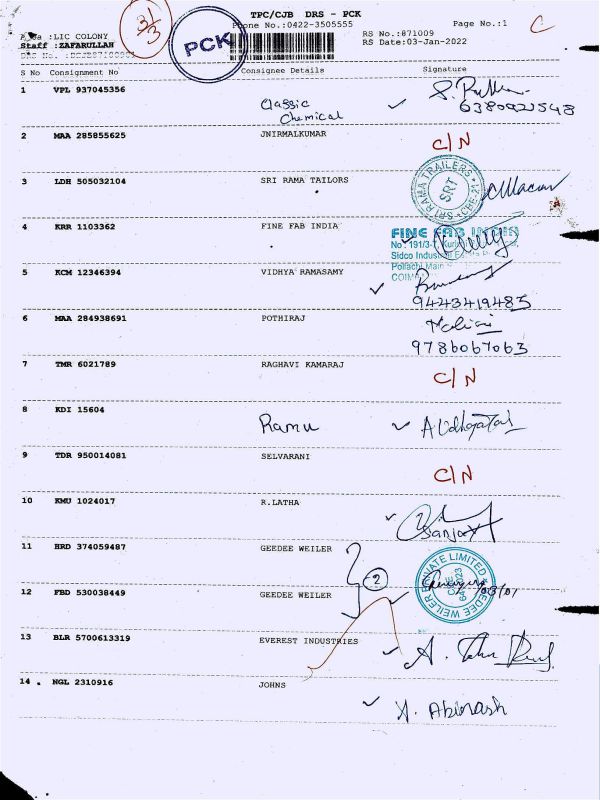 TPC/CJB DRS - PCK
Phone No.:0422-3505555
Page No.:1
C
3/3
PCK
Area :LIC COLONY
Staff :ZAFARULLAH
RS No.:871009
RS Date:03-Jan-2022
S No Consignment No Consignee Details Signature
1 VPL 937045356 Classic Chemical
6380921548
2 MAA 285855625 JNIRMALKUMAR C/N
3 LDH 505032104 SRI RAMA TAILORS
SRI RAMA TRAILERS SRT CBE-21
4 KRR 1103362 FINE FAB INDIA
FINE FAB
No: 191/3-7,
Sidco Industrial
Pollachi Main
5 KCM 12346394 VIDHYA RAMASAMY
9443419485
6 MAA 284938691 POTHIRAJ
9786067063
7 TMR 6021789 RAGHAVI KAMARAJ C/N
8 KDI 15604 Ramu
9 TDR 950014081 SELVARANI C/N
10 KMU 1024017 R.LATHA
Sanjay
11 HRD 374059487 GEEDEE WEILER
GEEDEE WEILER PRIVATE LIMITED
2
12 FBD 530038449 GEEDEE WEILER
13 BLR 5700613319 EVEREST INDUSTRIES
14 NGL 2310916 JOHNS
A. Abinash